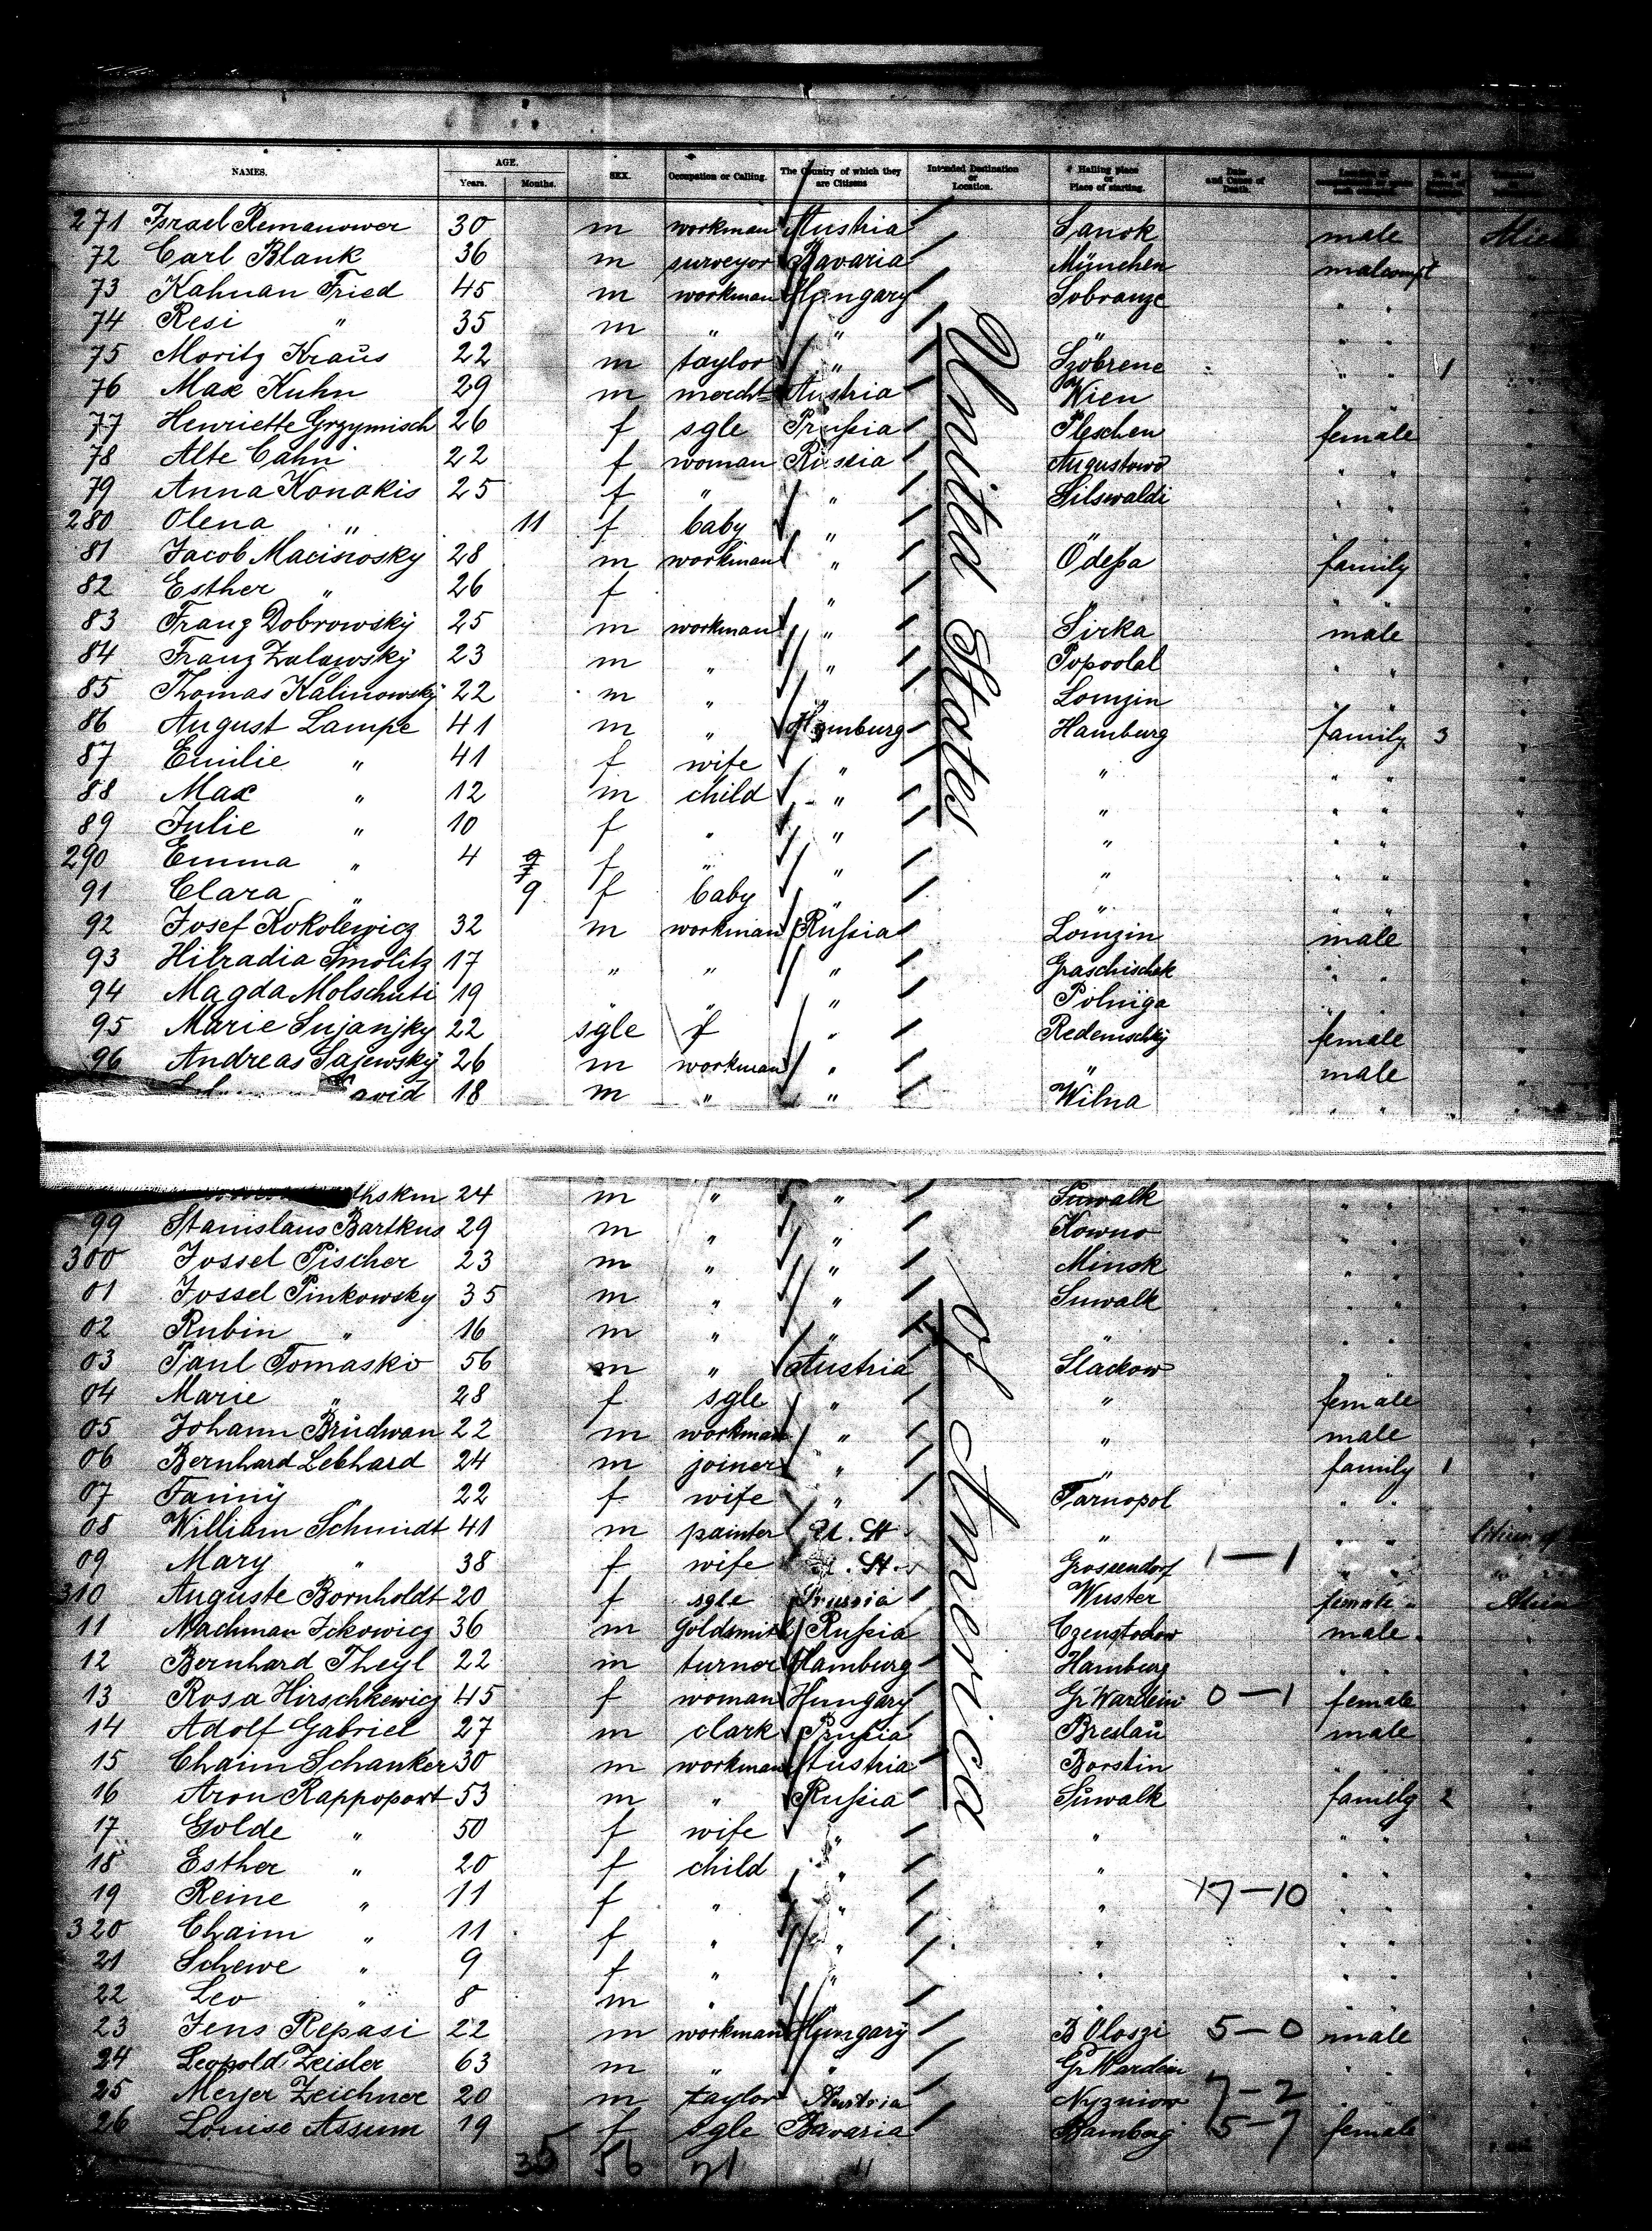 NAMES. AGE. Years. Months. SEX. Occupation or Calling. The Country of which they are Citizens Intended Destination or Location. Hailing place or Place of starting. Date and Cause of Death.
271 Israel Remanower 30 m workman Austria Sanok male
72 Carl Blank 36 m surveyor Bavaria München male
73 Kahnan Fried 45 m workman Hungary Sobranze " "
74 Resi " 35 m " " " " "
75 Moritz Kraus 22 m taylor " Szobrene " " 1
76 Max Kuhn 29 m mercht Austria Wien " "
77 Henriette Grzymisch 26 f sgle Prussia Pleschen female
78 Alte Cahn 22 f woman Russia Augustowo " "
79 Anna Konakis 25 f " " Silswaldi " "
280 Olena " 11 f baby " " " "
81 Jacob Macinosky 28 m workman " Odessa family
82 Esther " 26 f " " " "
83 Franz Dobrowsky 25 m workman " Sirka male
84 Franz Zalawsky 23 m " " Popoolal " "
85 Thomas Kalinowsky 22 m " " Lomzin " "
86 August Lampe 41 m " Hamburg Hamburg family 3
87 Emilie " 41 f wife " " " "
88 Max " 12 m child " " " "
89 Julie " 10 f " " " " "
290 Emma " 4 f " " " " "
91 Clara " 9 f baby " " " "
92 Josef Kokolewicz 32 m workman Russia Lomzin male
93 Hilradia Smolitz 17 " " " Graschischek " "
94 Magda Molschuti 19 " " " Polniga " "
95 Marie Sujanjky 22 sgle f " Redemschky female
96 Andreas Sajewsky 26 m workman " " male
avid 18 m " " Wilna " "
United States
thskm 24 m " " Suwalk " "
99 Stanislaus Bartkus 29 m " " Kowno " "
300 Jossel Pischer 23 m " " Minsk " "
01 Jossel Pinkowsky 35 m " " Suwalk " "
02 Rubin " 16 m " " " " "
03 Paul Tomasko 56 m " Austria Slackow " "
04 Marie " 28 f sgle " " female
05 Johann Brudwan 22 m workman " " male
06 Bernhard Lebhard 24 m joiner " " family 1
07 Fanny " 22 f wife " Tarnopol " "
08 William Schmidt 41 m painter U. St. " " "
09 Mary " 38 f wife U. St. Grossendorf 1—1 " "
310 Auguste Bornholdt 20 f sgle Prussia Wuster female
11 Nachman Ickowicz 36 m Goldsmith Russia Czenstochow male
12 Bernhard Theyl 22 m turner Hamburg Hamburg " "
13 Rosa Hirschkewicz 45 f woman Hungary Gr Wardein 0—1 female
14 Adolf Gabriel 27 m clark Prussia Breslau male
15 Chaim Schanker 30 m workman Austria Borstin " "
16 Aron Rappoport 53 m " Russia Suwalk family 2
17 Golde " 50 f wife " " " "
18 Esther " 20 f child " " " "
19 Reine " 11 f " " " 17—10 " "
320 Chaim " 11 f " " " " "
21 Schewe " 9 f " " " " "
22 Leo " 8 m " " " " "
23 Jens Repasi 22 m workman Hungary B Oloszi 5—0 male
24 Leopold Zeisler 63 m " " Gr Wardein " "
25 Meyer Zeichner 20 m taylor Austria Nyzniow 7—2 " "
26 Louise Assum 19 f sgle Bavaria Bamberg 5—7 female
of America
35 56 71 11